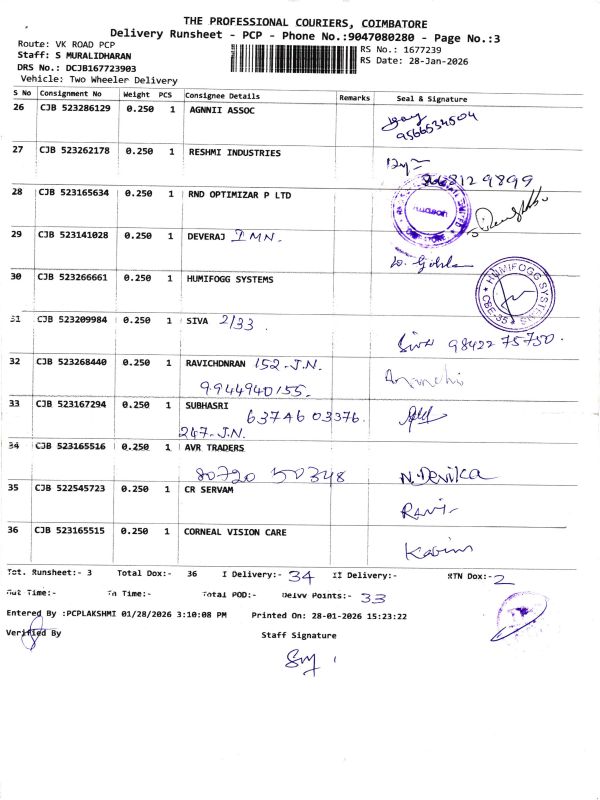 THE PROFESSIONAL COURIERS, COIMBATORE
Delivery Runsheet - PCP - Phone No.:9047080280 - Page No.:3
Route: VK ROAD PCP
Staff: S MURALIDHARAN
DRS No.: DCJB167723903
Vehicle: Two Wheeler Delivery
RS No.: 1677239
RS Date: 28-Jan-2026
S No Consignment No Weight PCS Consignee Details Remarks Seal & Signature
26 CJB 523286129 0.250 1 AGNNII ASSOC
9566534504
27 CJB 523262178 0.250 1 RESHMI INDUSTRIES
8129899
28 CJB 523165634 0.250 1 RND OPTIMIZAR P LTD
29 CJB 523141028 0.250 1 DEVERAJ I M N.
30 CJB 523266661 0.250 1 HUMIFOGG SYSTEMS
HUMIFOGG SYSTEMS CBE-35
31 CJB 523209984 0.250 1 SIVA 2/33
Siva 98422 75750.
32 CJB 523268440 0.250 1 RAVICHDNRAN 152-J.N.
9944940155.
33 CJB 523167294 0.250 1 SUBHASRI 63746 03376.
247-J.N.
34 CJB 523165516 0.250 1 AVR TRADERS
80720 50348 N.Devika
35 CJB 522545723 0.250 1 CR SERVAM
Ravi
36 CJB 523165515 0.250 1 CORNEAL VISION CARE
Tot. Runsheet:- 3 Total Dox:- 36 I Delivery:- 34 II Delivery:- RTN Dox:- 2
Out Time:- In Time:- Total POD:- Delvv Points:- 33
Entered By :PCPLAKSHMI 01/28/2026 3:10:08 PM Printed On: 28-01-2026 15:23:22
Verified By Staff Signature